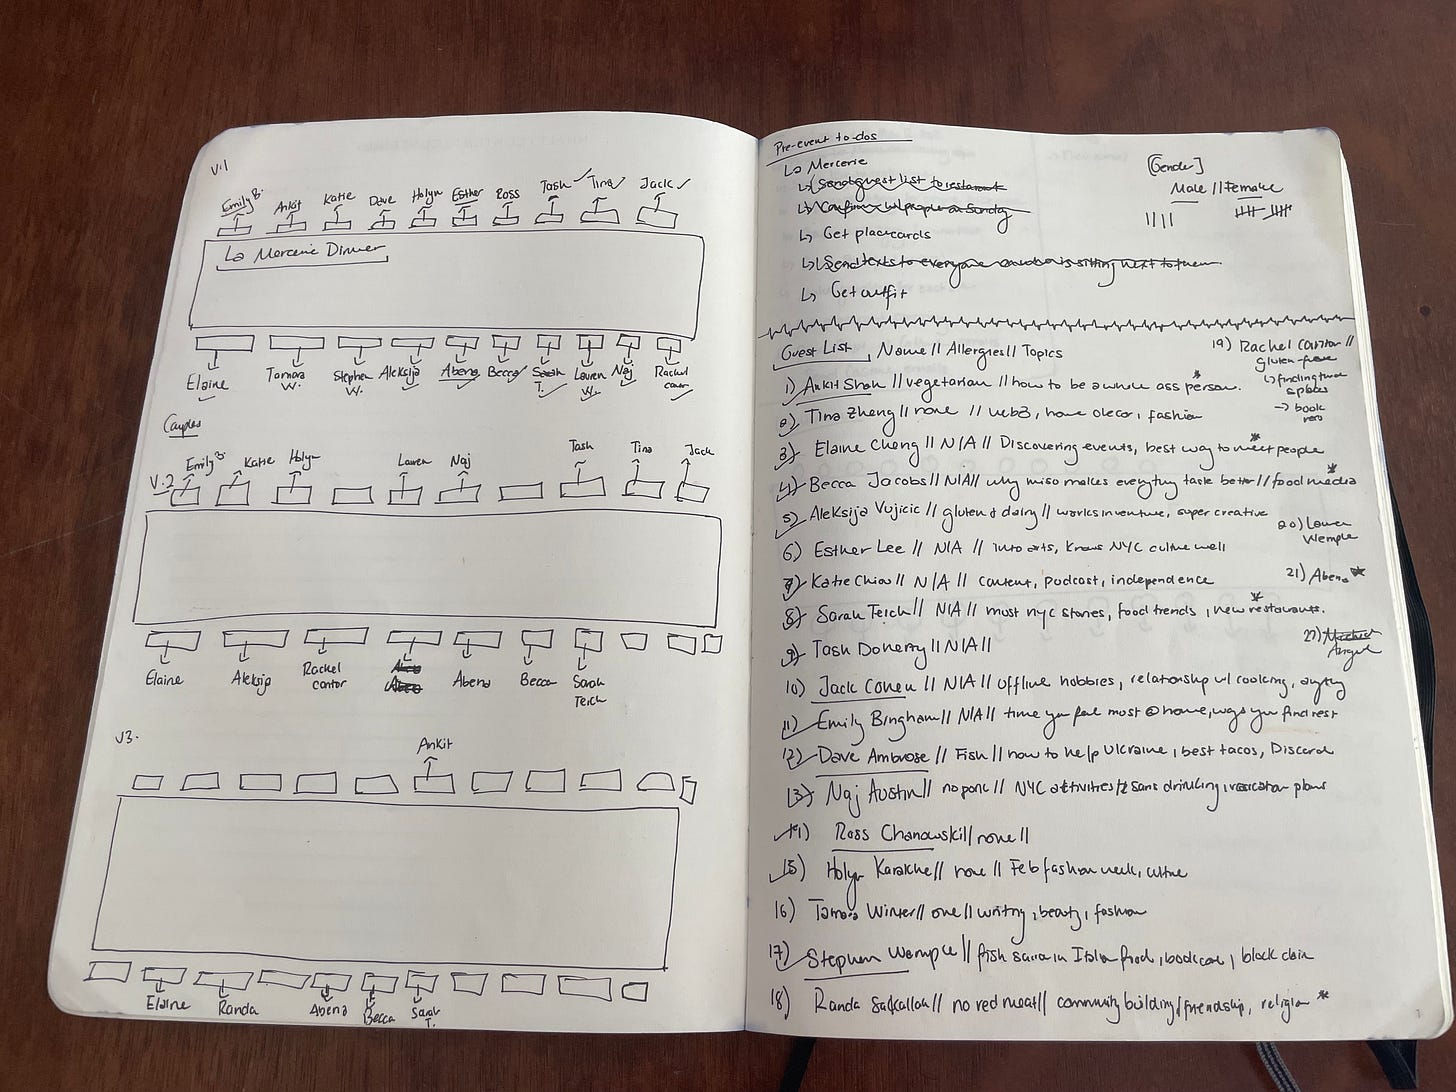 V.1
Emily B. Ankit Katie Dave Holyn Esther Ross Tash Tina Jack
La Mercerie Dinner
Elaine Tamara W. Stephen W. Aleksija Abena Becca Sarah T. Lauren W. Naj Rachel
Couples
V.2 Emily B. Katie Holyn Lauren Naj Tash Tina Jack
Elaine Aleksija Rachel Cantor Abena Becca Sarah Teich
V3.
Ankit
Elaine Randa Abena Becca Sarah T.
Pre-event to-dos
La Mercerie
Send guest list to restaurant
Confirm w/ people on Sunday
Get placecards
Send texts to everyone on who is sitting next to them
Get outfit
[Gender]
Male // Female
Guest List, Name // Allergies // Topics
1) Ankit Shah // vegetarian // how to be a whole ass person.
2) Tina Zheng // none // web3, home decor, fashion
3) Elaine Cheng // N/A // Discovering events, best way to meet people
4) Becca Jacobs // N/A // why miso makes everything taste better // food media
5) Aleksija Vujicic // gluten & dairy // works in venture, super creative
6) Esther Lee // N/A // into arts, knows NYC culture well
7) Katie Chiou // N/A // content, podcast, independence
8) Sarah Teich // N/A // must nyc stories, food trends, new restaurants.
9) Tash Doherty // N/A //
10) Jack Cohen // N/A // offline hobbies, relationship w/ cooking, anything
11) Emily Bingham // N/A // time you feel most @ home, ways you find rest
12) Dave Ambrose // Fish // how to help Ukraine, best tacos, Discord
13) Naj Austin // no pork // NYC activities sans drinking, vacation plans
14) Ross Chanowski // none //
15) Holyn // none // Feb fashion week, culture
16) Tamara Winter // none // writing, beauty, fashion
17) Stephen Wemple // fish sauce in Italian food, block chain
18) Randa Sakallah // no red meat // community building/friendship, religion
19) Rachel Cantor //
gluten-free
finding
spaces
→ book
recs
20) Lauren
Wemple
21) Abena
22)